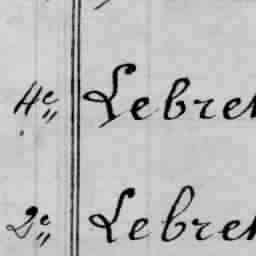 4e" Lebret
2e" Lebret